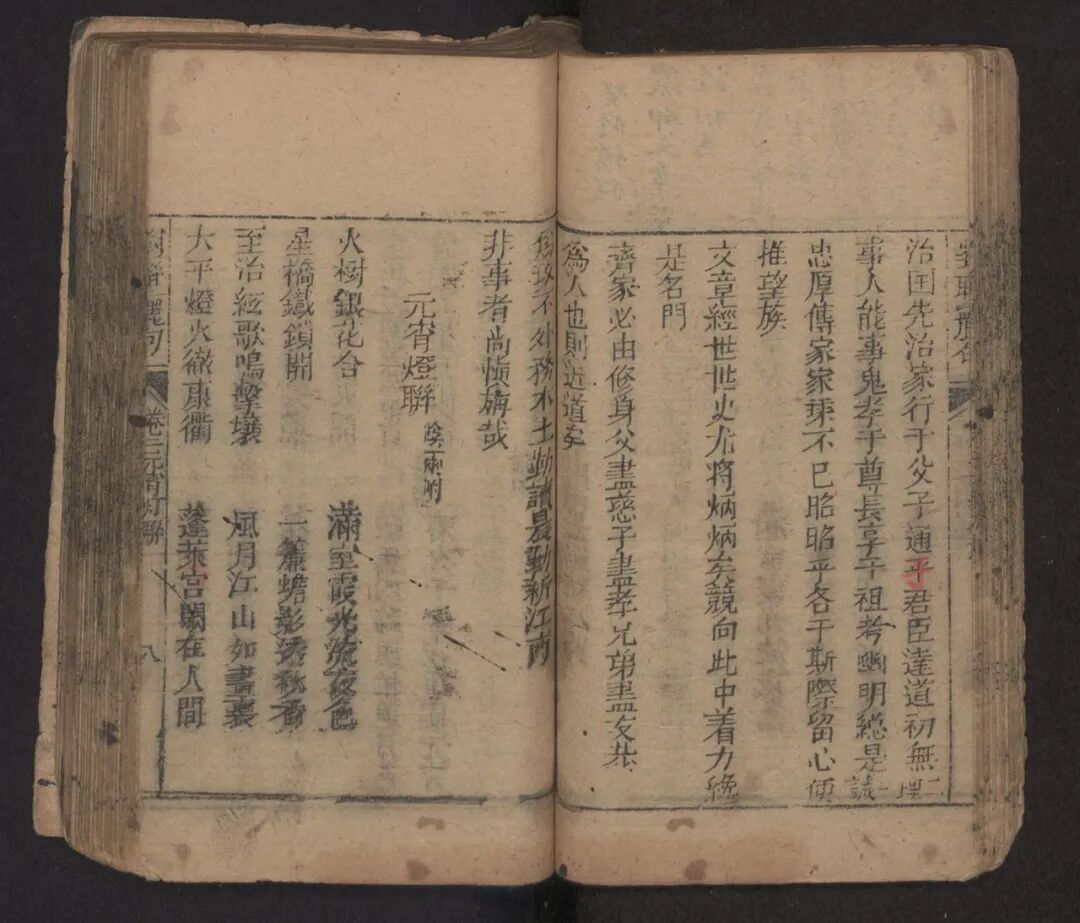 治国先治家行于父子通乎君臣達道初無二理
事人能事鬼孝于尊長享于祖考幽明總是一誠
忠厚傳家家乗不已昭昭乎各于斯際留心便
推望族
文章經世世史尤將炳炳矣競向此中着力纔
是名門
齊家必由修身父盡慈子盡孝兄弟盡友恭
爲人也則近道矣
不外務水土勤讀晨勤新江南
非事者尚慎旃哉
元宵燈聯
火樹銀花合
星橋鐵鎖開
至治絃歌鳴擊壤
大平燈火徹康衢
滿堂霞光流夜色
一簾蟾影透秋香
風月江山如畫裏
蓬萊宮闕在人間
卷三元宵灯聯
八